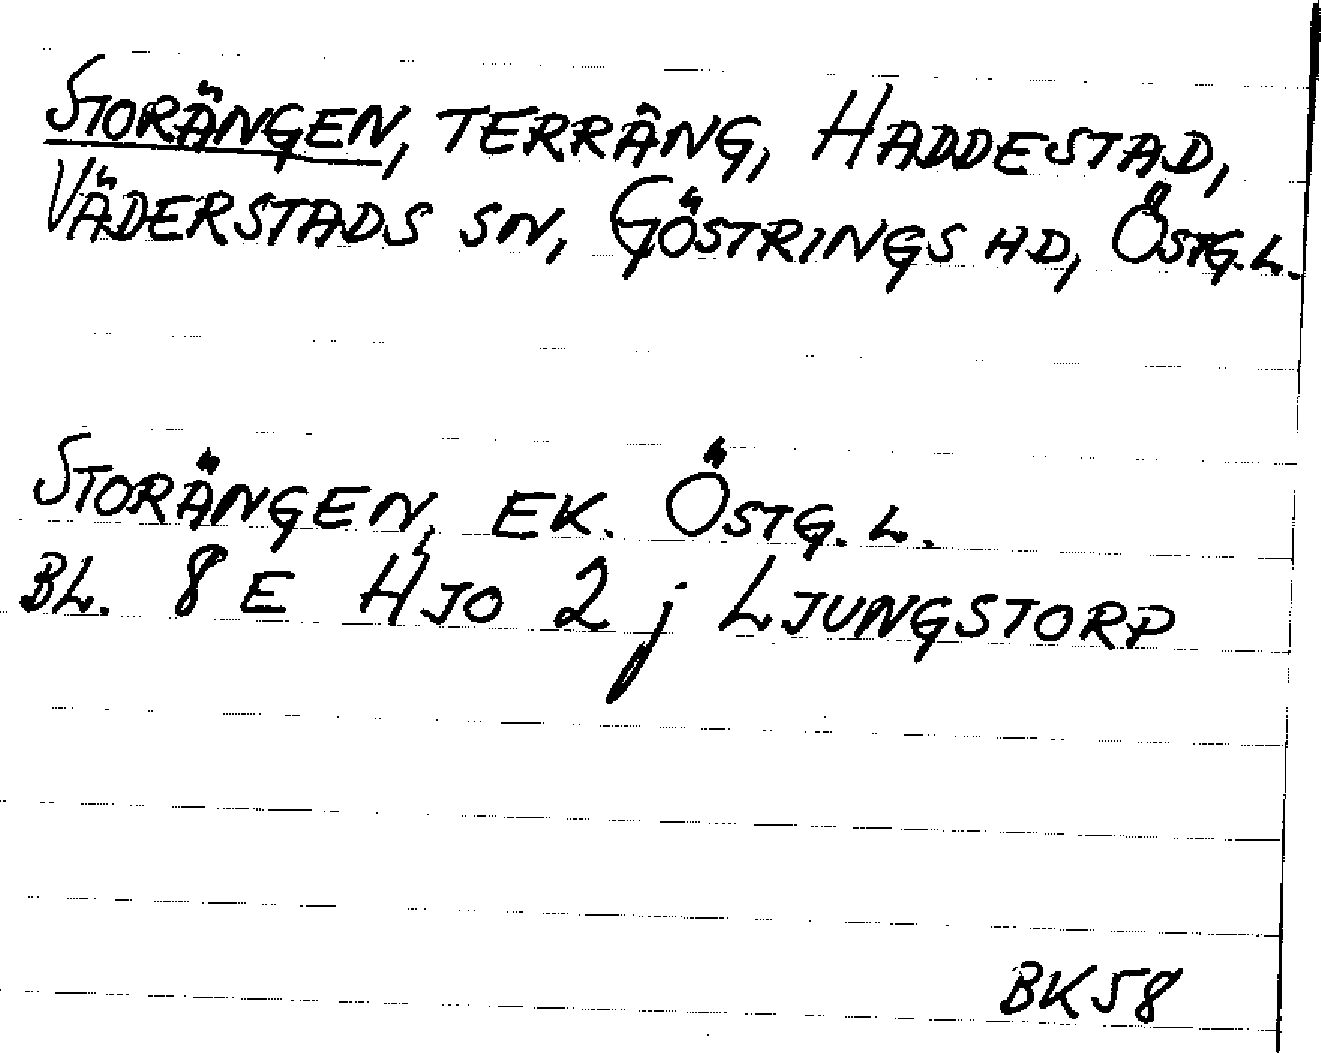 STORÄNGEN, TERRÄNG, HADDESTAD,
VÄDERSTADS SN, GÖSTRINGS HD, ÖSTG.L.
STORÄNGEN, EK. ÖSTG.L.
BL. 8 E HJO 2 j LJUNGSTORP
BK58